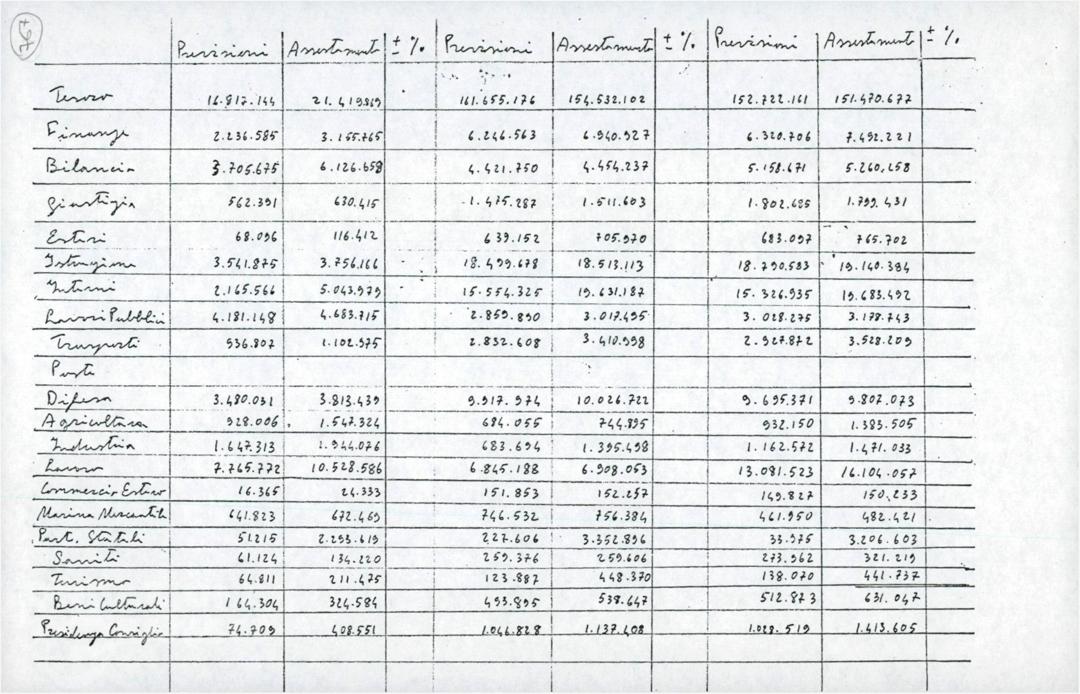 Previsioni Assestamenti ± % Previsioni Assestamenti ± % Previsioni Assestamenti ± %
Tesoro 16.817.144 21.419.869 161.655.176 154.532.102 152.722.161 151.470.677
Finanze 2.236.585 3.155.765 6.246.563 6.940.927 6.320.706 7.492.221
Bilancio 3.705.675 6.126.658 4.421.750 4.454.237 5.158.671 5.260.258
Giustizia 562.391 630.415 1.475.287 1.511.603 1.802.695 1.799.431
Esteri 68.096 116.412 639.152 705.970 683.097 765.702
Istruzione 3.541.875 3.756.166 18.499.678 18.513.113 18.790.583 19.140.394
Interni 2.165.566 5.043.979 15.554.325 19.631.187 15.326.935 19.683.492
Lavori Pubblici 4.181.148 4.683.715 2.859.890 3.017.495 3.028.275 3.178.743
Trasporti 936.807 1.102.975 2.832.608 3.410.998 2.927.872 3.528.209
Poste
Difesa 3.480.031 3.813.439 9.917.974 10.026.722 9.695.371 9.807.073
Agricoltura 928.006 1.547.324 684.055 744.895 932.150 1.383.505
Industria 1.647.313 1.944.076 683.694 1.395.498 1.162.572 1.471.033
Lavoro 7.765.772 10.528.586 6.845.188 6.908.053 13.081.523 16.104.057
Commercio Estero 16.365 24.333 151.853 152.257 149.827 150.233
Marina Mercantile 641.823 672.469 746.532 756.384 461.950 482.421
Part. Statali 51215 2.293.619 227.606 3.352.896 33.975 3.206.603
Sanità 61.124 134.220 259.376 259.606 273.962 321.219
Turismo 64.811 211.475 123.887 448.370 138.070 441.737
Beni Culturali 164.304 324.584 493.895 538.647 512.873 631.047
Presidenza Consiglio 74.709 408.551 1.046.828 1.137.408 1.028.519 1.413.605